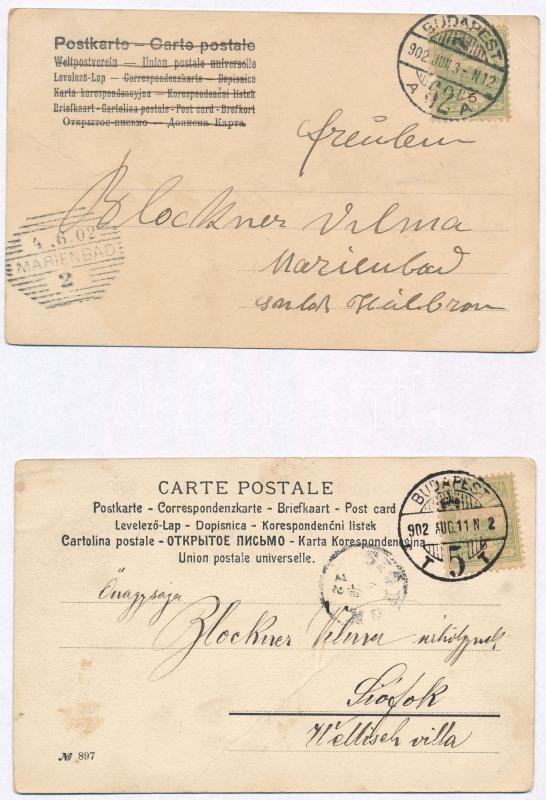 Postkarte – Carte postale
Weltpostverein — Union postale universelle
Levelező-Lap — Correspondenzkarte — Dopisnice
Karta korespondencyjna — Korespondenční listek
Briefkaart - Cartolina postale - Post card - Brefkort
Открытое-письмо — Дописна Карта
BUDAPEST
902 JUN. 3 - N 12
4.6.02
MARIENBAD
2
freulein
Blockner Vilma
Marienbad
CARTE POSTALE
Postkarte - Correspondenzkarte - Briefkaart - Post card
Levelező-Lap - Dopisnica - Korespondenční listek
Cartolina postale - ОТКРЫТОЕ ПИСЬМО - Karta Korespondencyjna
Union postale universelle.
BUDAPEST
902 AUG. 11 N 2
T 5 T
Őnagysága
Blockner Vilma
Siófok
Wellisch villa
№ 897